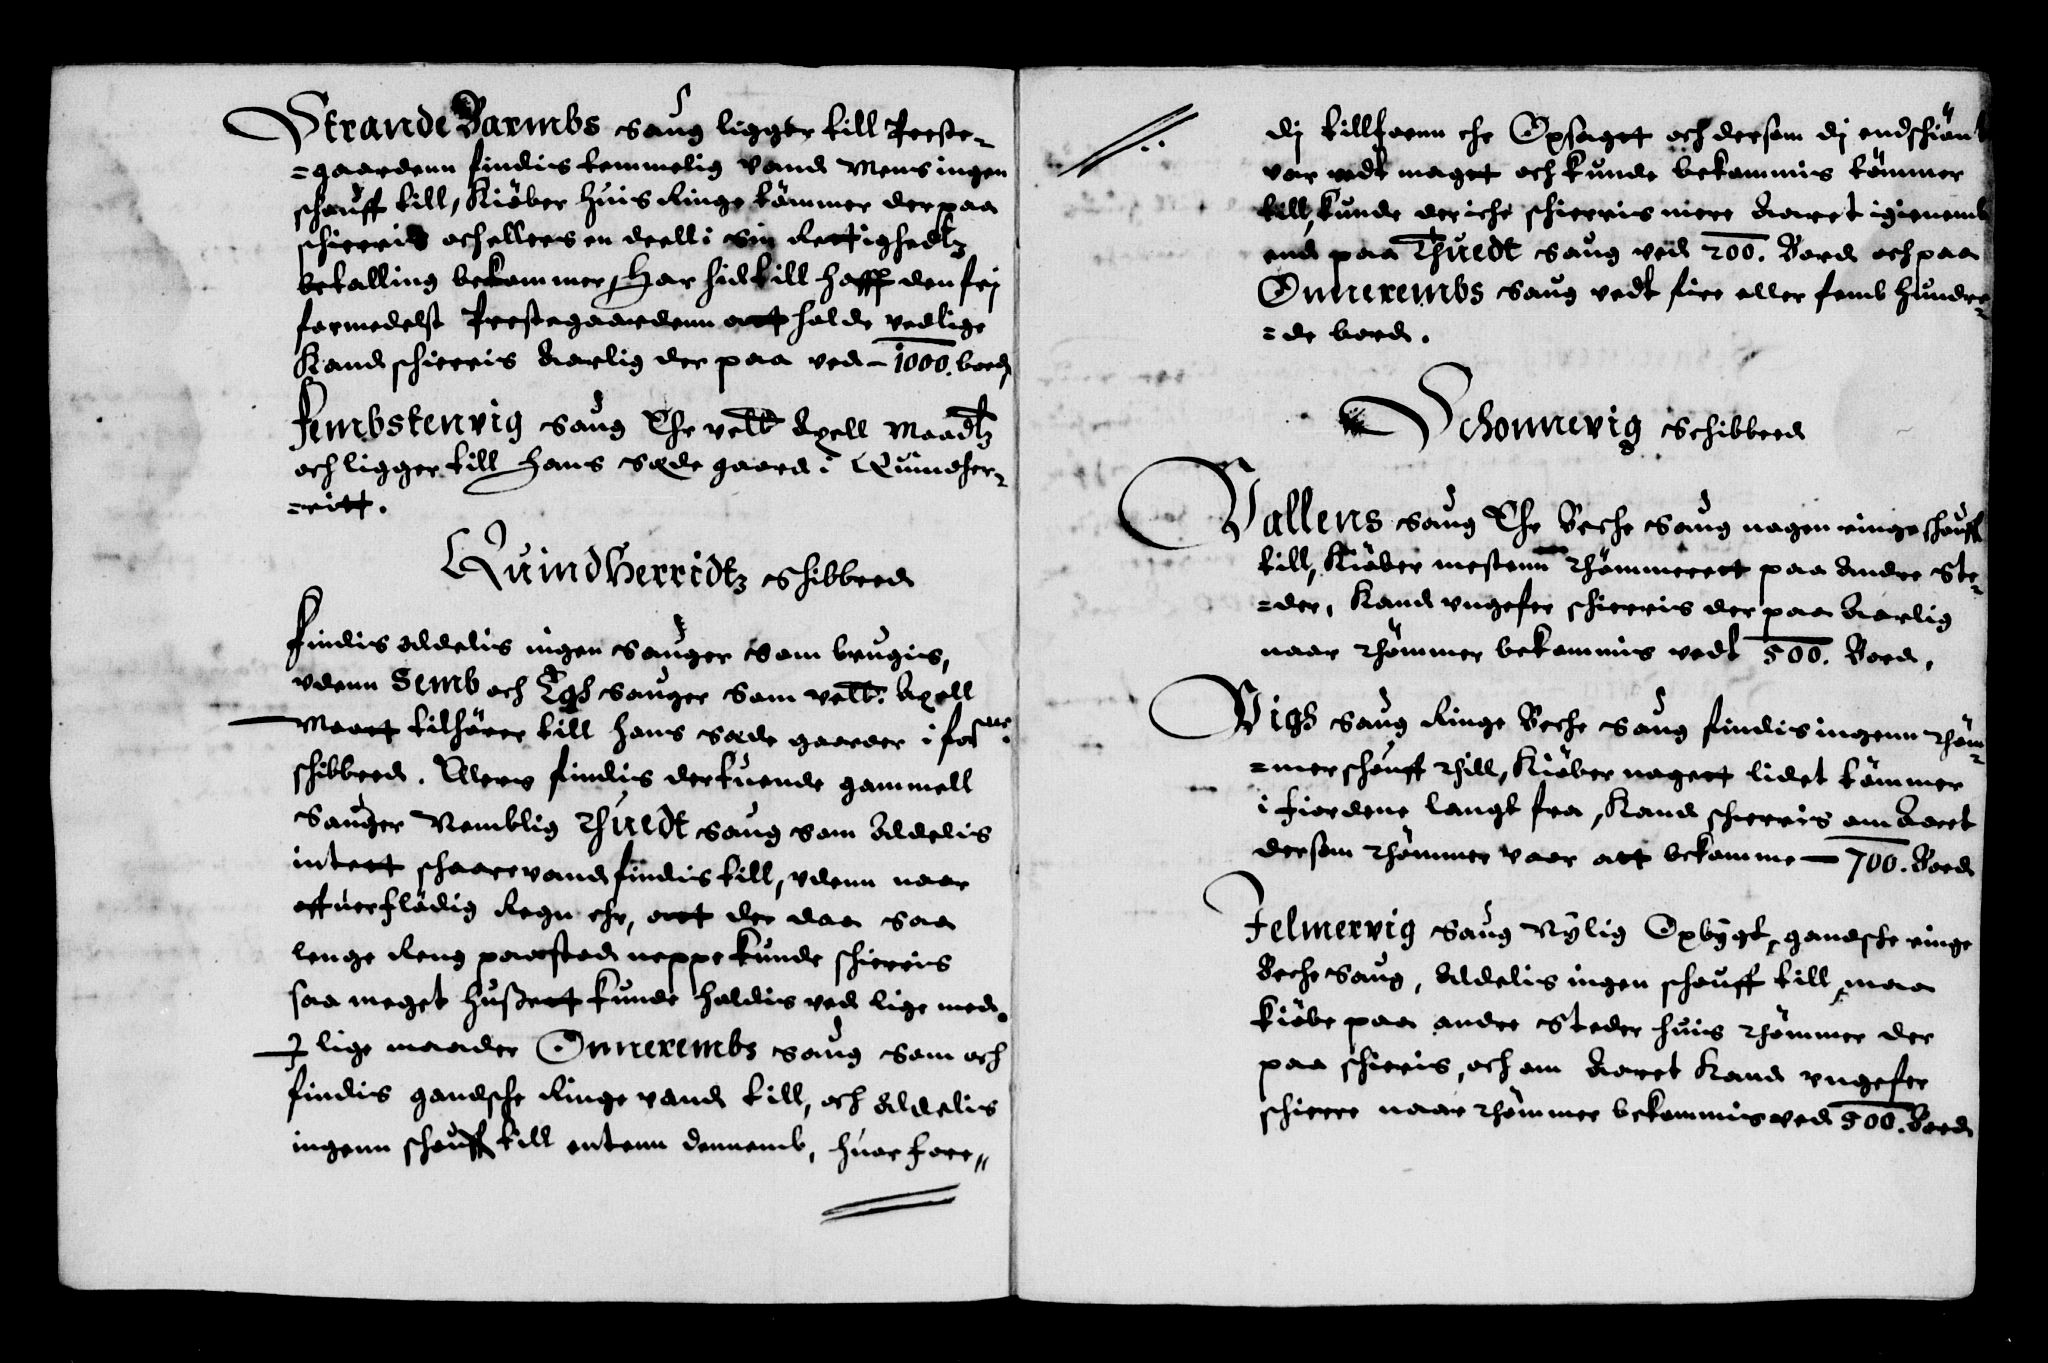 Strande Barmbs saug ligger till Preste¬
=gaardenn findis temmelig vand Mens ingen
schouff till, Kiöber huis Ringe tömmer der paa
schierris och ellers en deell i sin Rettighedtz
betalling bekommer, Har hid till hafft den frj
formedelst Prestegaardenn att holde vedlige
Kand schierris Aarlig der paa ved - 1000. bord,
Fembstenvig saug Ehr velb Axell Maadtz
och ligger till hans sæde gaard i Quindher¬
=ritt.
QuindHerridtz schibbred
Findis Aldelis ingen sauger som brugis,
vdenn Semb och sauger som velb: Axell
Maatt tilhörer till hans sæde gaarder i for.ne
schibbred. Ellers findis der tuende gammell
sauger Nemblig Thuedt saug som Aldelis
intett schaarevand findis till, vdenn naar
offuerflödig Regn ehr, att der daa saa
lenge Reng paastod neppe kunde schierris
saa meget hussett kunde holdis ved lige med.
J lige maader Onnerembs saug som och
findis gandsche Ringe vand till, och Aldelis
ingenn schouff till entenn dennemb, huor fore,,
dj tillforn ehr Opsagt och dersom dj endschiönt
var vedt magt och kunde bekommis tömmer
till, kunde der iche schierris mere Aaret igienemb
end paa Thuedt saug ved 200. Bord och paa
Onnerembs saug vedt fire eller femb hundre¬
=de bord.
Schonnevig schibbred
Vallens saug Ehr Beche saug nogen ringe schouff
till, Kiöber mestenn Thömmerett paa Andre Ste¬
=der, Kand vngefer schierris der paa Aarlig
naar Thömmer bekommis vedt 500. Bord,
Vigs saug Ringe Beche saug findis ingenn Thöm¬
=mer schouff Thill, Kiöber nogett lidet tömmer
i fiordene langt fra, Kand schierris om Aaret
dersom Thömmer vaar att bekomme - 700. Bord
Felmervig saug Nÿlig Opbÿgt, gandske ringe
Beche saug, Aldelis ingen schouff till, maa
kiöbe paa andre Steder huis Thömmer der
paa schieris, och om Aaret Kand vngefer
schierre naar Thömmer bekommis ved 500. Bord